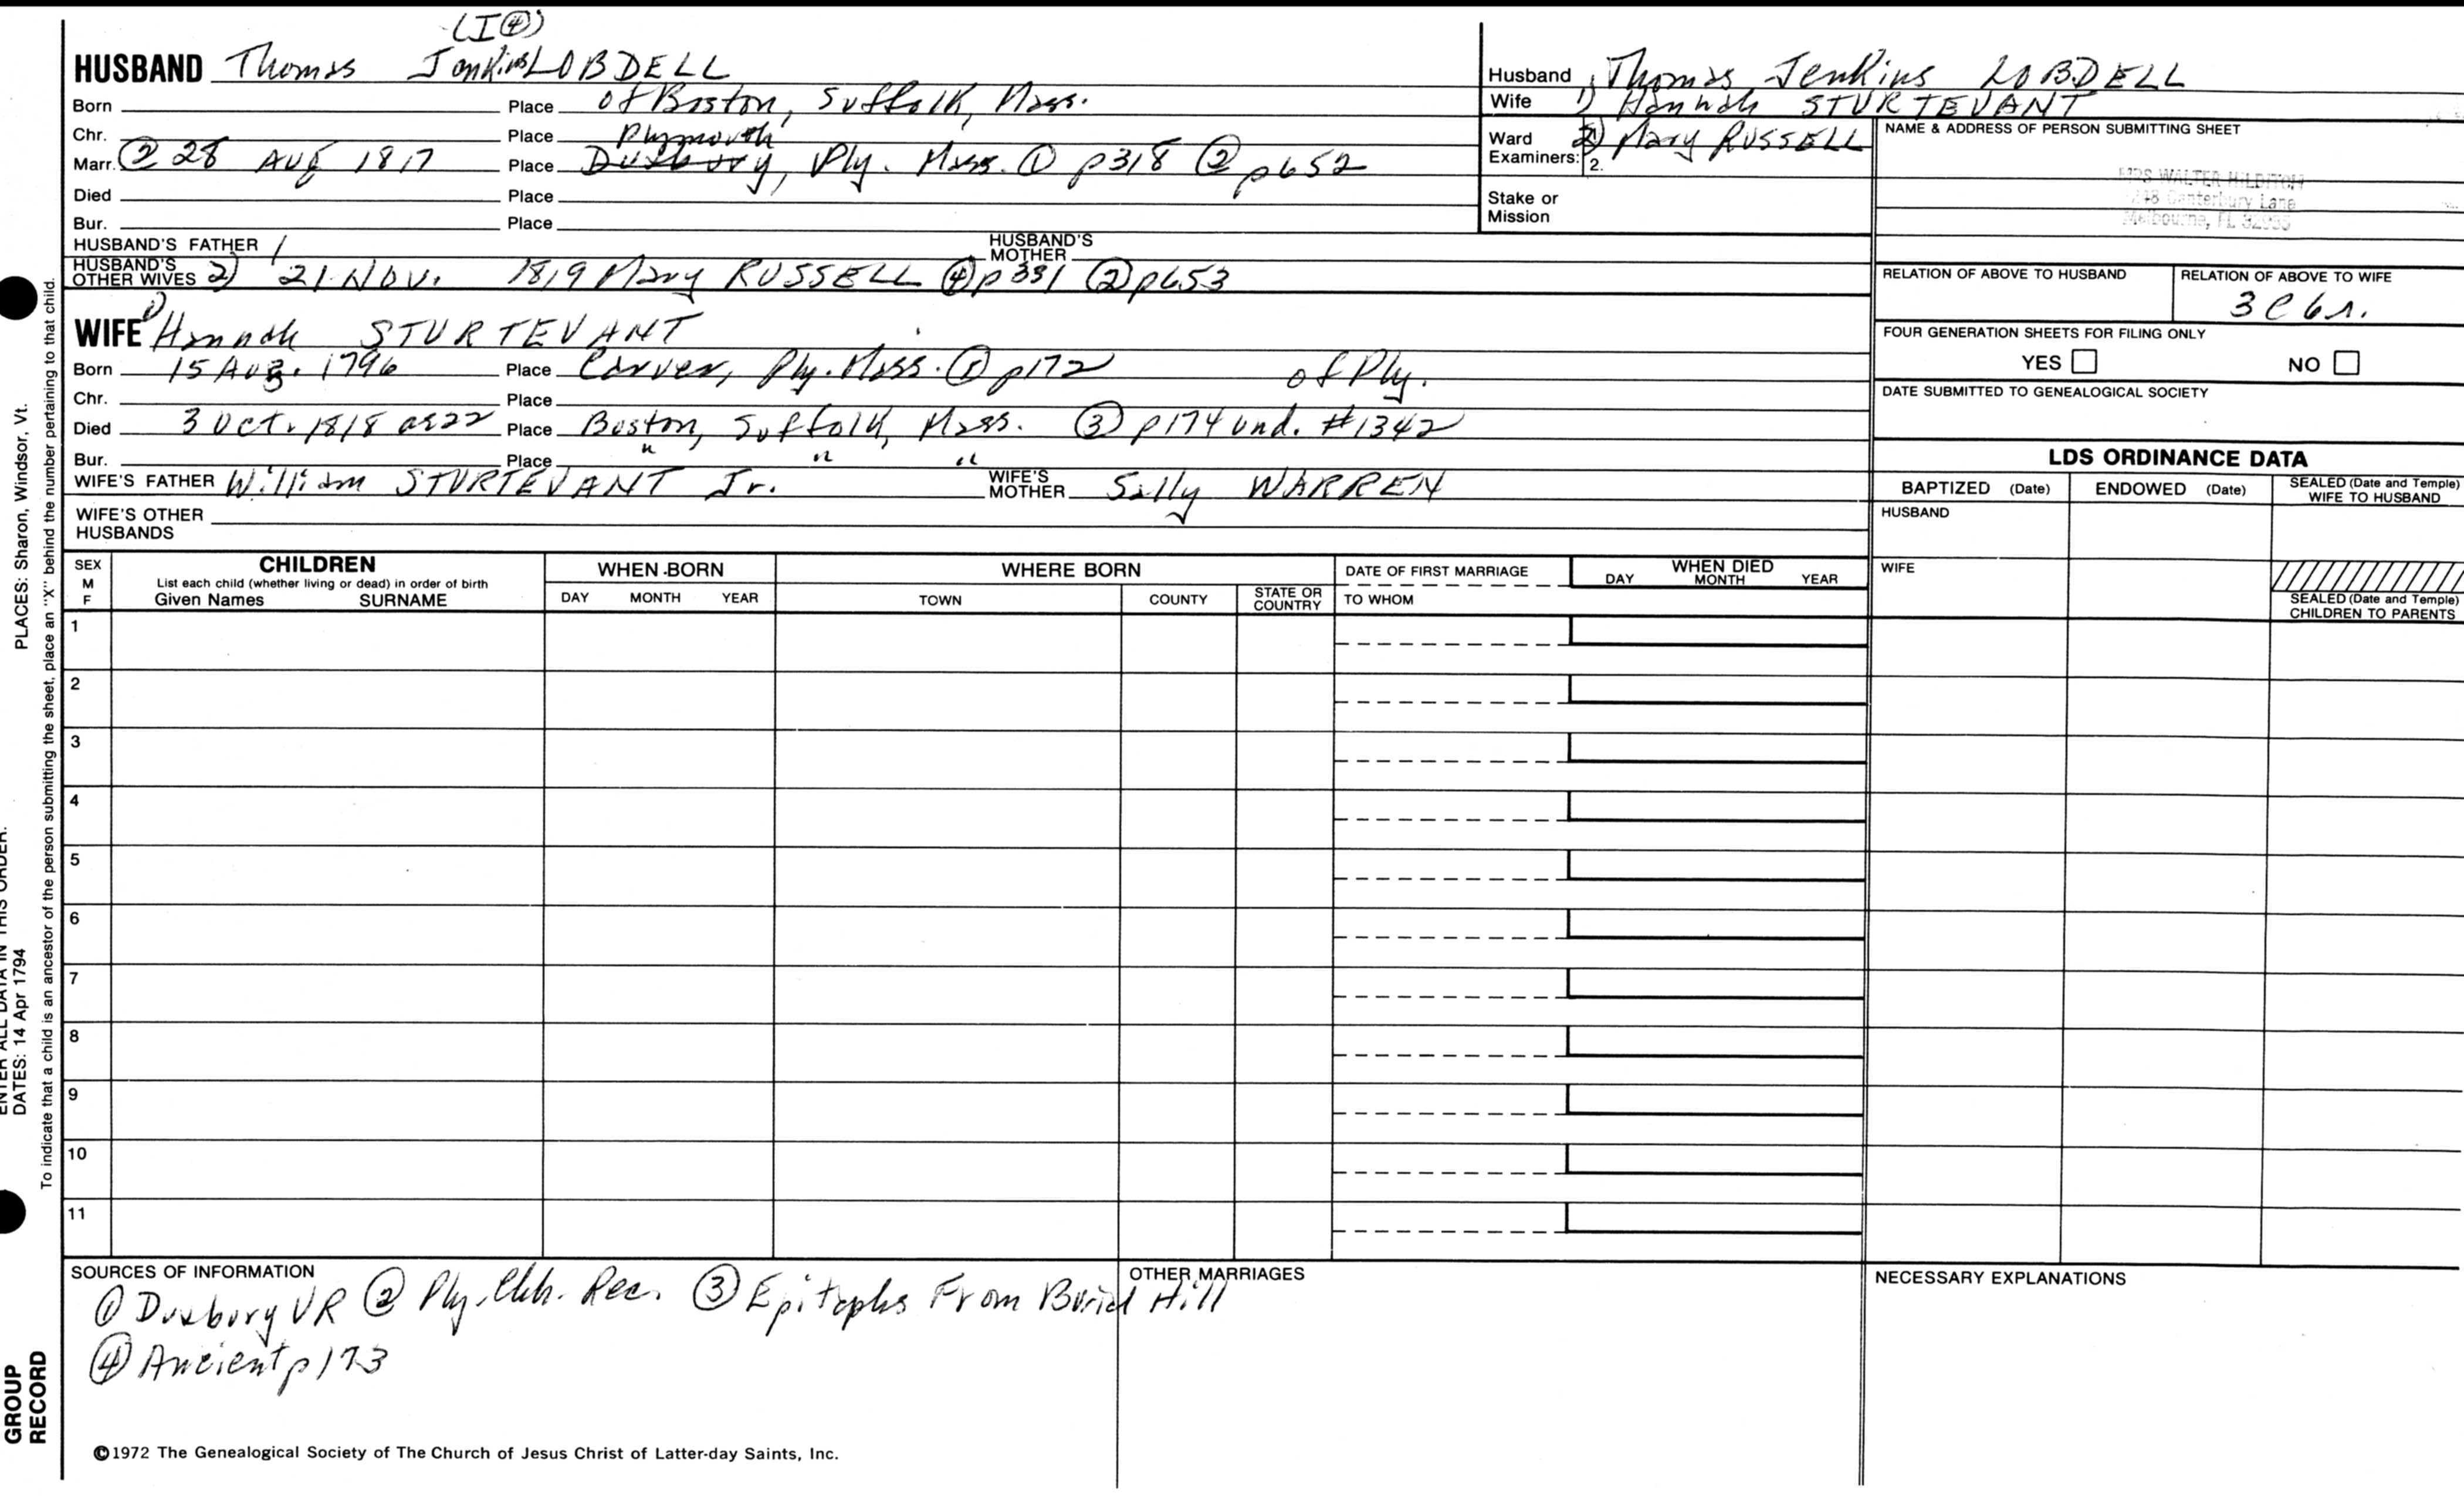 (I④)
HUSBAND Thomas Jenkins LOBDELL
Born Place of Boston, Suffolk, Mass.
Chr. Place Plymouth
Marr. ② 28 AUG 1817 Place Duxbury, Ply. Mass. ① p318 ② p652
Died Place
Bur. Place
HUSBAND'S FATHER HUSBAND'S MOTHER
HUSBAND'S OTHER WIVES 2) 21 NOV. 1819 Mary RUSSELL ④ p331 ② p653
WIFE 1) Hannah STURTEVANT
Born 15 Aug. 1796 Place Carver, Ply. Mass. p172 of Ply.
Chr. Place
Died 3 Oct. 1818 ae 22 Place Boston, Suffolk, Mass. ③ p174 und. #1342
Bur. Place " " "
WIFE'S FATHER William STURTEVANT Jr. WIFE'S MOTHER Sally WARREN
WIFE'S OTHER HUSBANDS
Husband Thomas Jenkins LOBDELL
Wife 1) Hannah STURTEVANT
Ward 2) Mary RUSSELL
Examiners: 2.
Stake or Mission
NAME & ADDRESS OF PERSON SUBMITTING SHEET
MRS WALTER HILDITCH
Canterbury Lane
Melbourne, FL
RELATION OF ABOVE TO HUSBAND RELATION OF ABOVE TO WIFE
3C6r.
FOUR GENERATION SHEETS FOR FILING ONLY
YES NO
DATE SUBMITTED TO GENEALOGICAL SOCIETY
LDS ORDINANCE DATA
BAPTIZED (Date) ENDOWED (Date) SEALED (Date and Temple) WIFE TO HUSBAND
HUSBAND
WIFE
SEALED (Date and Temple) CHILDREN TO PARENTS
SEX M F
CHILDREN
List each child (whether living or dead) in order of birth
Given Names SURNAME
WHEN BORN
DAY MONTH YEAR
WHERE BORN
TOWN COUNTY STATE OR COUNTRY
DATE OF FIRST MARRIAGE
TO WHOM
WHEN DIED
DAY MONTH YEAR
1
2
3
4
5
6
7
8
9
10
11
SOURCES OF INFORMATION
① Duxbury VR ② Ply. Chh. Rec. ③ Epitaphs From Burial Hill
④ Ancient p173
OTHER MARRIAGES
NECESSARY EXPLANATIONS
©1972 The Genealogical Society of The Church of Jesus Christ of Latter-day Saints, Inc.
PLACES: Sharon, Windsor, Vt.
To indicate that a child is an ancestor of the person submitting the sheet, place an "X" behind the number pertaining to that child.
ENTER ALL DATA IN THIS ORDER:
DATES: 14 Apr 1794
GROUP
RECORD